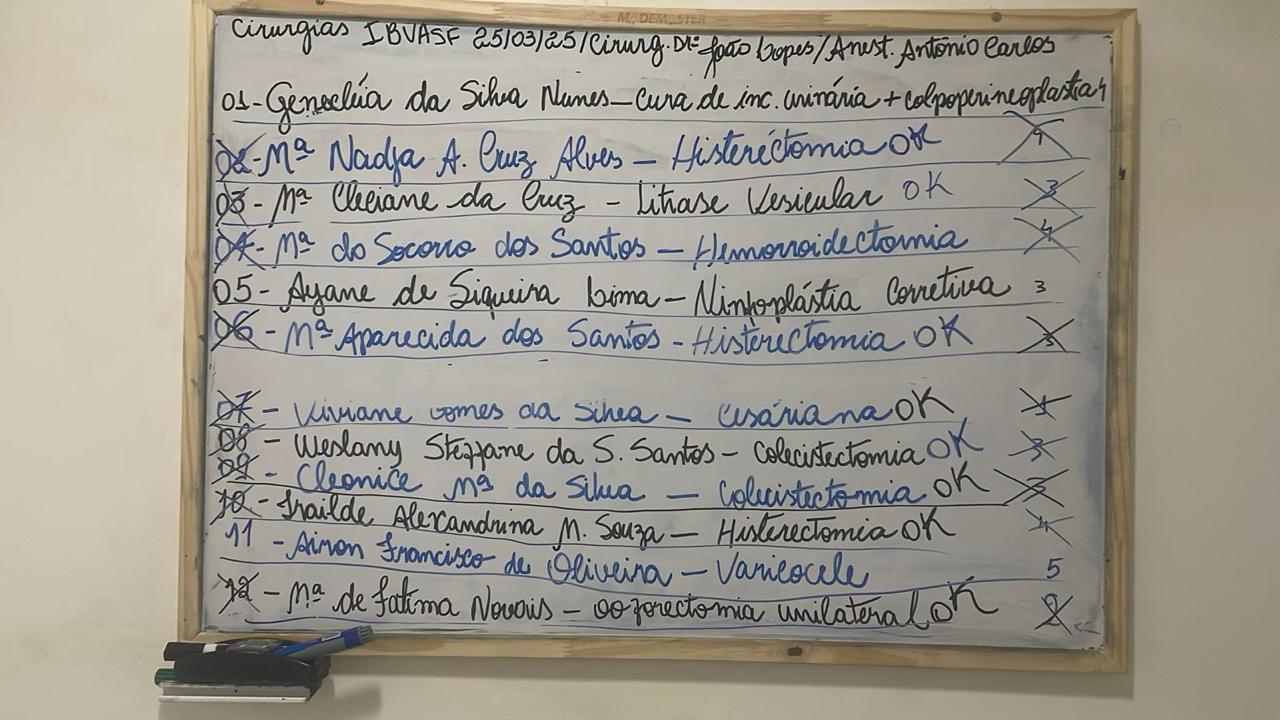 MADEMASTER
Cirurgias IBVASF 25/03/25/Cirurg. Drº João Lopes/Anest. Antônio Carlos
01-Genocléia da Silva Nunes-cura de inc. urinária + colpoperineoplastia 4
02-Mª Nadja A. Cruz Alves - Histeréctomia OK 1
03-Mª Cleciane da Cruz - Litiase Vesicular OK 3
04-Mª do Socorro dos Santos - Hemorroidectomia 4
05-Ayane de Siqueira Lima - Ninfoplástia Corretiva 3
06-Mª Aparecida dos Santos - Histerectomia OK 3
07-Viviane Gomes da Silva - Cesáriana OK 1
08-Weslany Steffane da S. Santos - Colecistectomia OK 3
09-Cleonice Mª da Silva - Colecistectomia OK 3
10-Irailde Alexandrina M. Souza - Histerectomia OK 4
11-Airon Francisco de Oliveira - Varicocele 5
12-Mª de Fatima Novais - ooforectomia unilateral OK 2